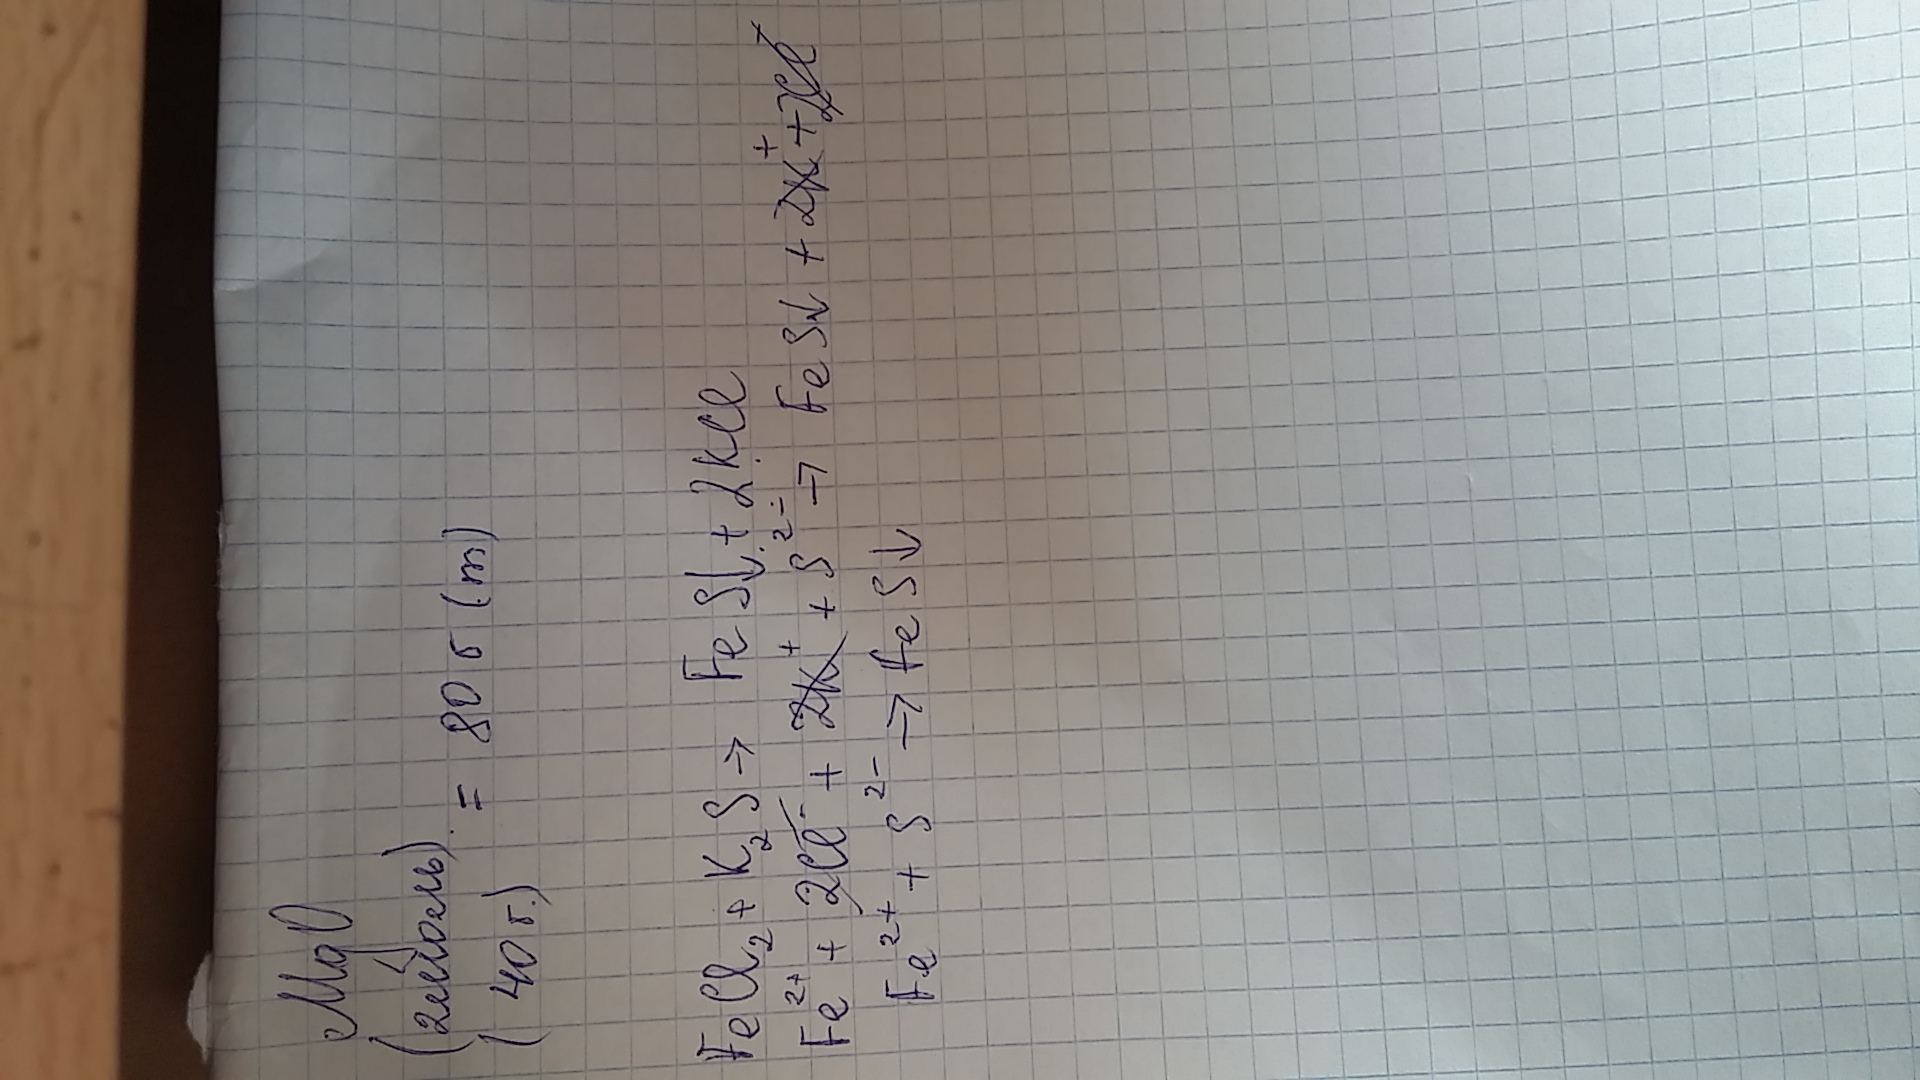 MgO
(2моль) = 80 г (m)
(40 г.)
FeCl₂ + K₂S → FeS↓ + 2KCl
Fe²⁺ + 2Cl⁻ + 2K⁺ + S²⁻ → FeS↓ + 2K⁺ + 2Cl⁻
Fe²⁺ + S²⁻ → FeS↓